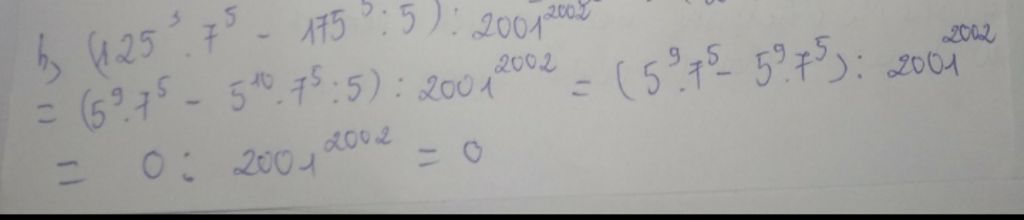 b, (125³.7⁵ - 175⁵:5):2001²⁰⁰²
= (5⁹.7⁵ - 5¹⁰.7⁵:5):2001²⁰⁰² = (5⁹.7⁵- 5⁹.7⁵): 2001²⁰⁰²
= 0: 2001²⁰⁰² = 0